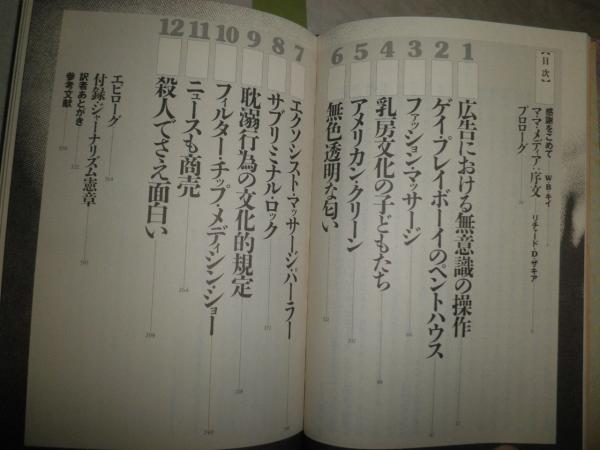 【目次】
感謝をこめて W・B・キイ
ママ・メディア・序文 リチャード・D・ザキア
プロローグ
1 広告における無意識の操作
2 ゲイ・プレイボーイのペントハウス
3 ファッション・マッサージ
4 乳房文化の子どもたち
5 アメリカン・クリーン
6 無色透明な匂い
7 エクソシスト・マッサージ・パーラー
8 サブリミナル・ロック
9 耽溺行為の文化的規定
10 フィルター・チップ・メディシン・ショー
11 ニュースも商売
12 殺人でさえ面白い
エピローグ
付録・ジャーナリズム憲章
訳者あとがき
参考文献